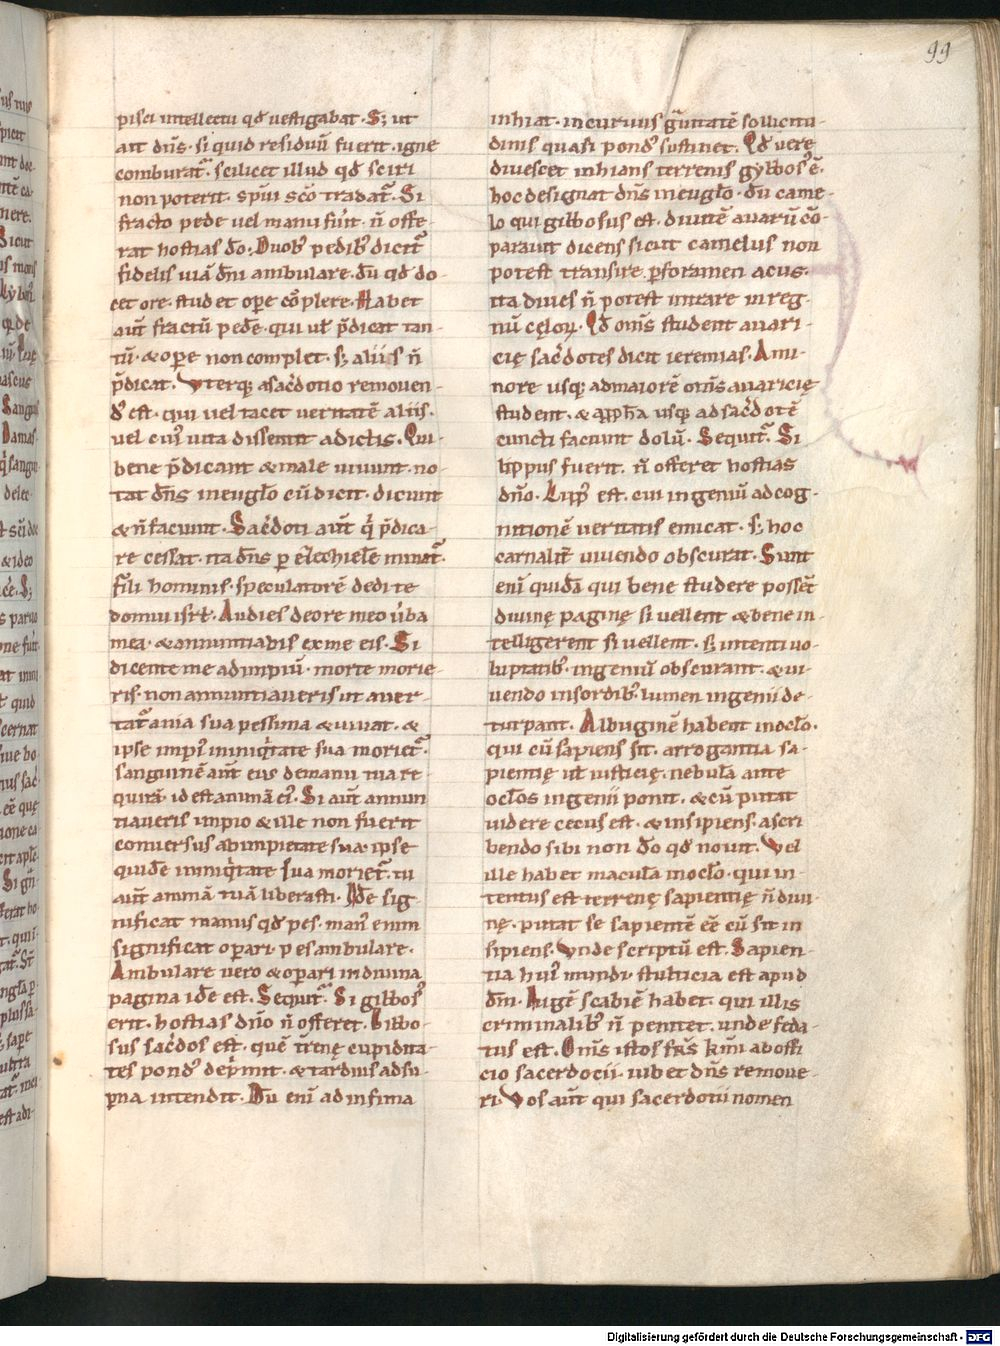 99
pisci intellectu qđ uestigabat. S; ut
ait dn̄s. si quid residuū fuerit. igne
comburat᷑. scilicet illud qđ sciri
non poterit. sp̄ui sc̄o tradat᷑. Si
fracto pede uel manu fūit. n̄ offe-
rat hostias đo. Duobꝰ pedibꝰ dicit᷑
fidelis uiā dn̄i ambulare. dū qđ do-
cet ore. studet oꝑe cōplere. Habet
aūt fractū pedē. qui ul̄ p̄dicat tan-
tū. & oꝑe non complet. sꝫ aliis n̄
p̄dicat. Vterqꝫ a sac̄dotio remouen-
dꝰ est. qui uel tacet ueritatē aliis.
uel cuiꝰ uita dissentit a dictis. Qui
bene p̄dicant & male uiuunt. no-
tat dn̄s in eugl̄o cū dicit. dicunt
& n̄ faciunt. Sac̄doti aūt q̇ p̄dica-
re cessat. ita dn̄s ꝑ ezechielē minat᷑.
Fili hominis. speculatorē dedi te
domui isrl̄. Audies de ore meo ūba
mea. & annuntiabis ex me eis. Si
dicente me ad impiū. morte morie-
ris. non annuntiaueris ut auer-
tat᷑ a uia sua pessima & uiuat. &
ipse impiꝰ in iniq̇tate sua moriet᷑.
sanguinē aūt eius de manu tua re-
quirā. id est animā eiꝰ. Si aūt annun
tiaueris impio & ille non fuerit
conuersus ab impietate sua. ipse
quidē in iniq̇tate sua moriet᷑. tu
aūt animā tuā liberasti. Idē sig-
nificat manus qđ pes. manꝰ enim
significat oꝑari. pes ambulare.
Ambulare uero & oꝑari in diuina
pagina idē est. Sequit᷑. Si gibbosꝰ
erit. hostias dn̄o n̄ offeret. Gibbo-
sus sac̄dos est. quē t̄renę cupidita-
tes pondꝰ dep̄mit. & tardius ad su-
ꝑna intendit. Dū eni᷑ ad infima
inhiat. incuruus g̃uitatē sollicitu-
dinis quasi pondꝰ sustinet. Qđ uere
diuescet inhians terrenis gybbosꝰ ē.
hoc designat dn̄s in eugl̄o. dū came-
lo qui gibbosus est. diuitē auarū cō-
parauit dicens sicut camelus non
potest transire ꝑ foramen acus.
ita diues n̄ potest intrare in reg-
nū cęloꝝ. Qđ omīs student auari-
cię sac̄dotes dicit ieremias. A mi-
nore usqꝫ ad maiorē omīs auaricię
student. & a ꝓph̄a usqꝫ ad sac̄dotē
cuncti faciunt dolū. Sequit᷑. Si
lippus fuerit. n̄ offeret hostias
dn̄o. Lippꝰ est. cui ingeniū ad cog-
nitionē ueritatis emicat. sꝫ hoc
carnalit᷑ uiuendo obscurat. Sunt
eni᷑ quidā qui bene studere possēt
diuinę paginę si uellent & bene in-
telligerent si uellent. sꝫ intenti uo-
luptatibꝰ. ingeniū obscurant. & ui-
uendo in sordibꝰ lumen ingenii de-
turpant. Albuginē habent in ocl̄o.
qui cū sapiens sit. arrogantia sa-
pientię ul̄ iusticię. nebulā ante
ocl̄os ingenii ponit. & cū putat
uidere cecus est. & insipiens. ascri
bendo sibi non đo qđ nouit. Vel
ille habet maculā in ocl̄o. qui in-
tentus est terrenę sapientię n̄ diui-
nę. putat se sapientē eē cū sit in
sipiens. Vnde scriptū est. Sapien-
tia huiꝰ mundi stulticia est apud
dm̄. Iugē scabiē habet. qui illis
criminalibꝰ n̄ penitet. unde feda-
tus est. Omīs istos fr̄s km̄i ab offi
cio sacerdocii. iubet dn̄s remoue-
ri. Vos aūt qui sacerdotii nomen
Digitalisierung gefördert durch die Deutsche Forschungsgemeinschaft - DFG